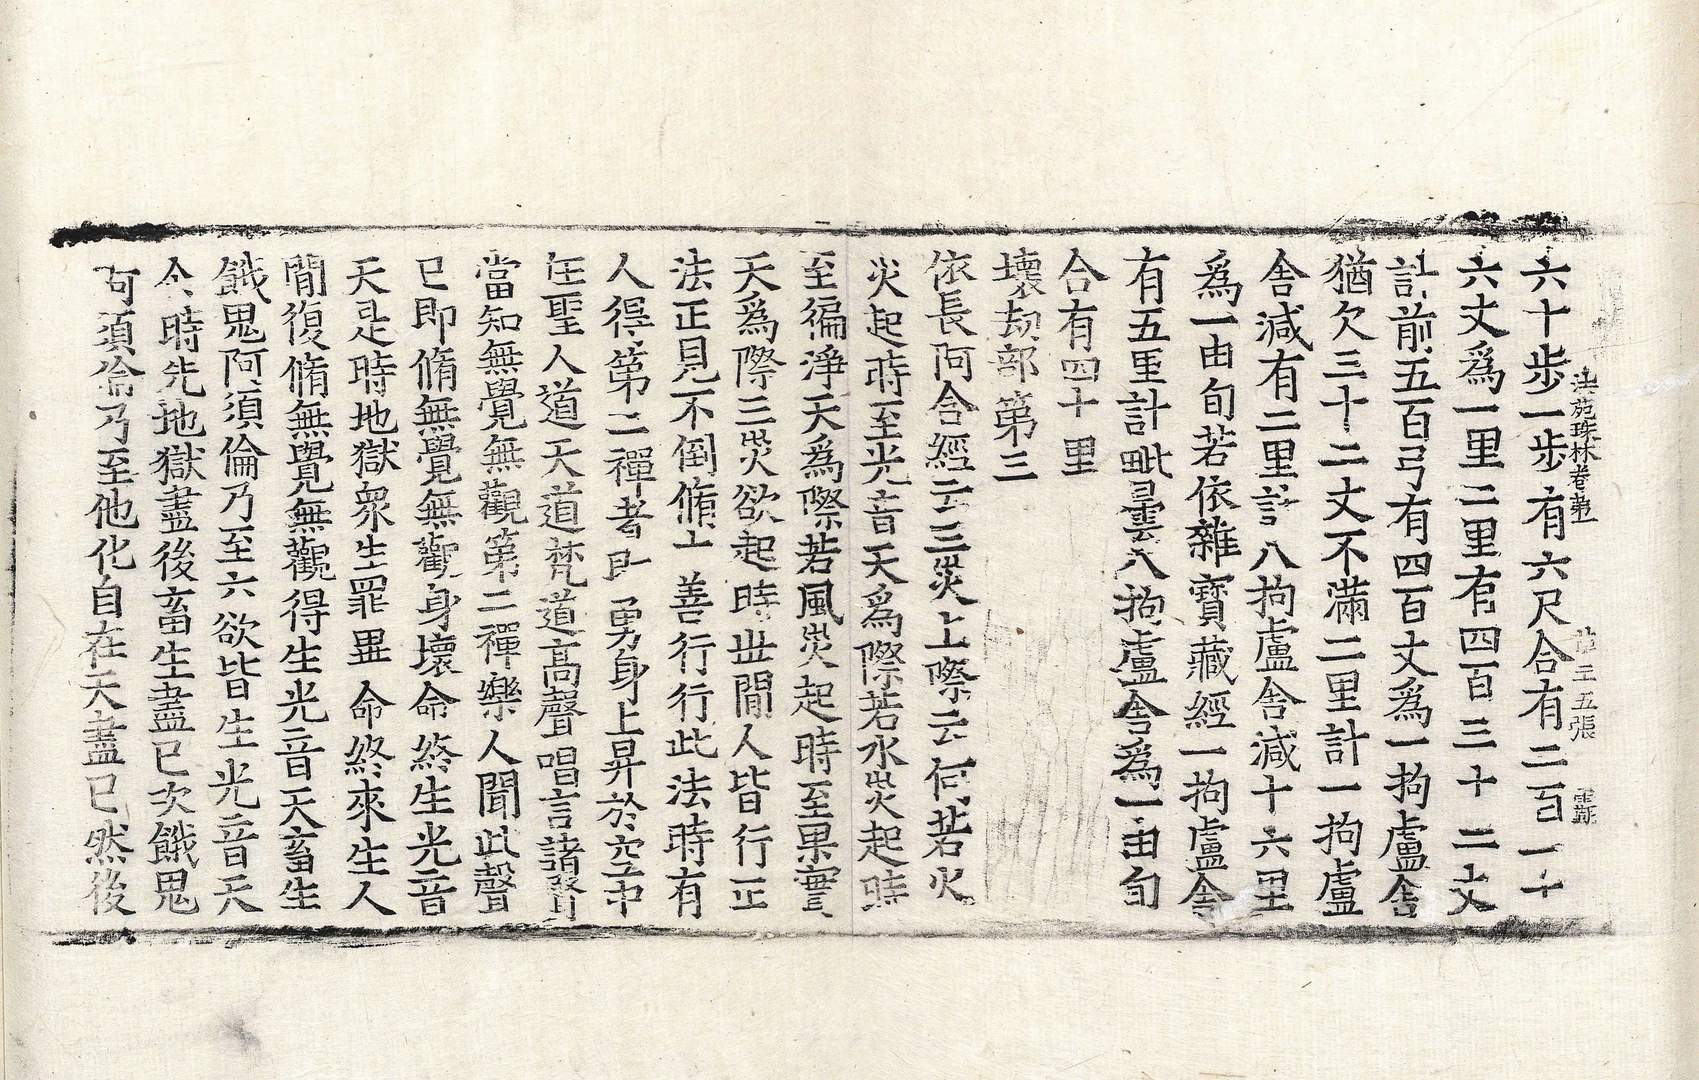 法苑珠林卷第一 第五張 覇
六十步一步有六尺合有三百一十
六丈爲一里二里有四百三十二丈
計前五百弓有四百丈爲一拘盧舎
猶欠三十二丈不滿二里計一拘盧
舎減有二里計八拘盧舎減十六里
爲一由旬若依雜寶藏經一拘盧舎
有五里計毗曇八拘盧舎爲一由旬
合有四十里
壞劫部第三
依長阿含經云三災上際云何若火
災起時至光音天爲際若水災起時
至徧淨天爲際若風災起時至果實
天爲際三災欲起時世間人皆行正
法正見不倒脩十善行行此法時有
人得第二禪者即勇身上昇於空中
住聖人道天道梵道高聲唱言諸賢
當知無覺無觀第二禪樂人聞此聲
已即脩無覺無觀身壞命終生光音
天是時地獄衆生罪畢命終來生人
間復脩無覺無觀得生光音天畜生
餓鬼阿須倫乃至六欲皆生光音天
今時先地獄盡後畜生盡已次餓鬼
阿須倫乃至他化自在天盡已然後